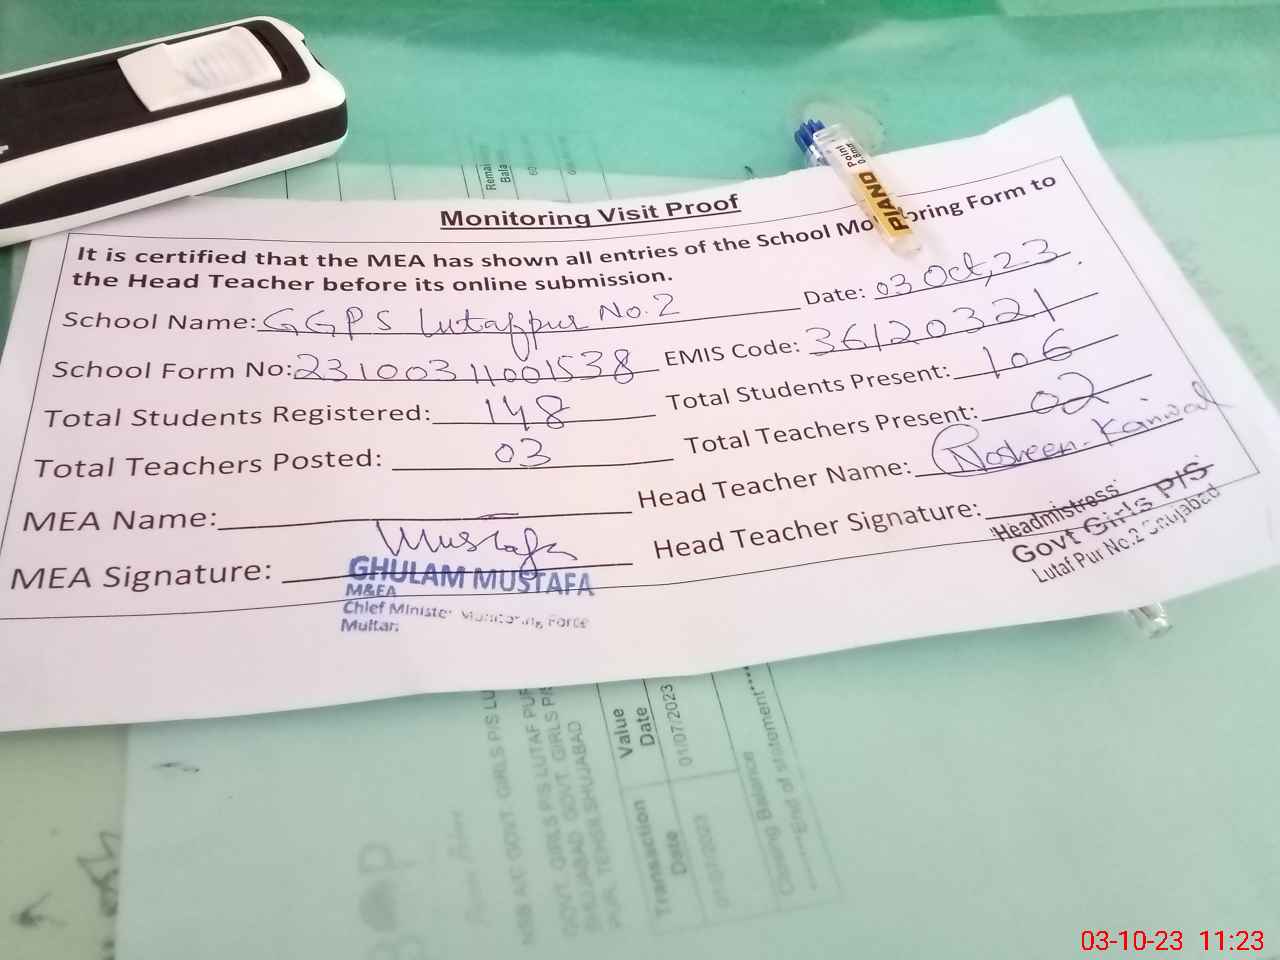 Remai
Bala
PIANO Point 0.8mm
Monitoring Visit Proof
It is certified that the MEA has shown all entries of the School Mo oring Form to
the Head Teacher before its online submission.
School Name: GGPS Lutafpur No.2 Date: 03 Oct, 23.
School Form No: 23100311001538 EMIS Code: 36120321
Total Students Registered: 148 Total Students Present: 106
Total Teachers Posted: 03 Total Teachers Present: 02
MEA Name: Head Teacher Name: Nosheen Kanwal
MEA Signature: Mustafa Head Teacher Signature:
GHULAM MUSTAFA
M&EA
Chief Minister Monitoring Force
Multan
Headmistress
Govt Girls P/S
Lutaf Pur No.2 Shujabad
NSB A/C GOVT. GIRLS P/S LU
GOVT. GIRLS P/S LUTAF PUR
SHUJABAD GOVT. GIRLS P/S
PUR, TEHSIL SHUJABAD
Transaction Date
Value Date
01/07/2023
01/07/2023
Closing Balance
End of statement
03-10-23 11:23